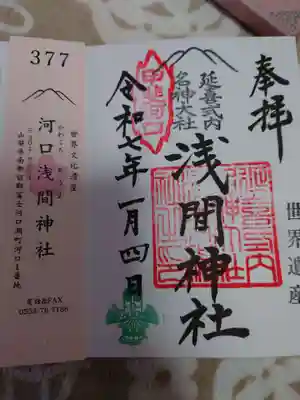 377
世界文化遺産
河口浅間神社
山梨県南都留郡富士河口湖町河口1番地
電話&FAX
0555-76-7186
奉拝
延喜式内
名神大社
浅間神社
世界遺産
甲斐河口
令和七年一月四日